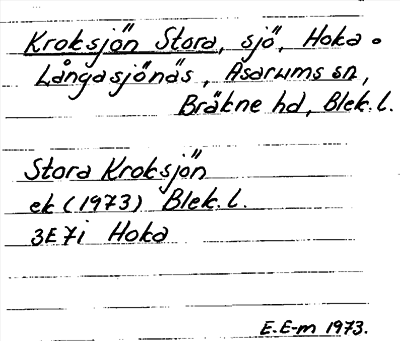 Kroksjön Stora, sjö, Hoka o
Långasjönäs, Asarums sn,
Bräkne hd, Blek. l.
Stora Kroksjön
ek (1973) Blek. l.
3E7i Hoka
E. E-m 1973.